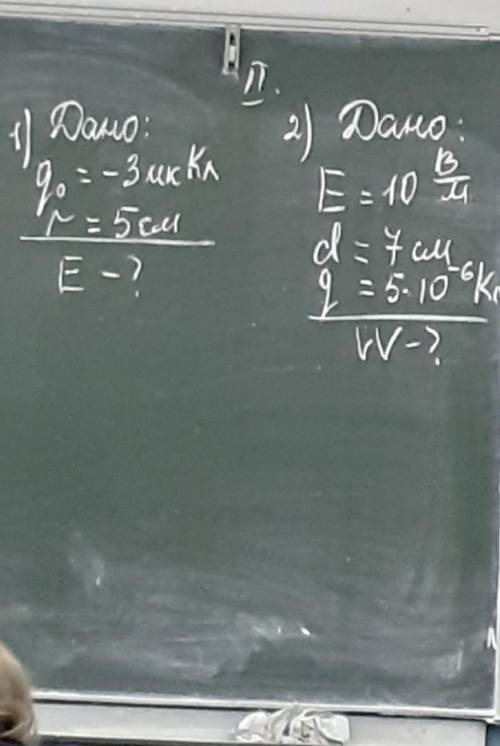 II.
1) Дано:
q₀ = -3 мкКл
r = 5 см
E - ?
2) Дано:
E = 10 В/м
d = 7 см
q = 5·10⁻⁶ Кл
W - ?